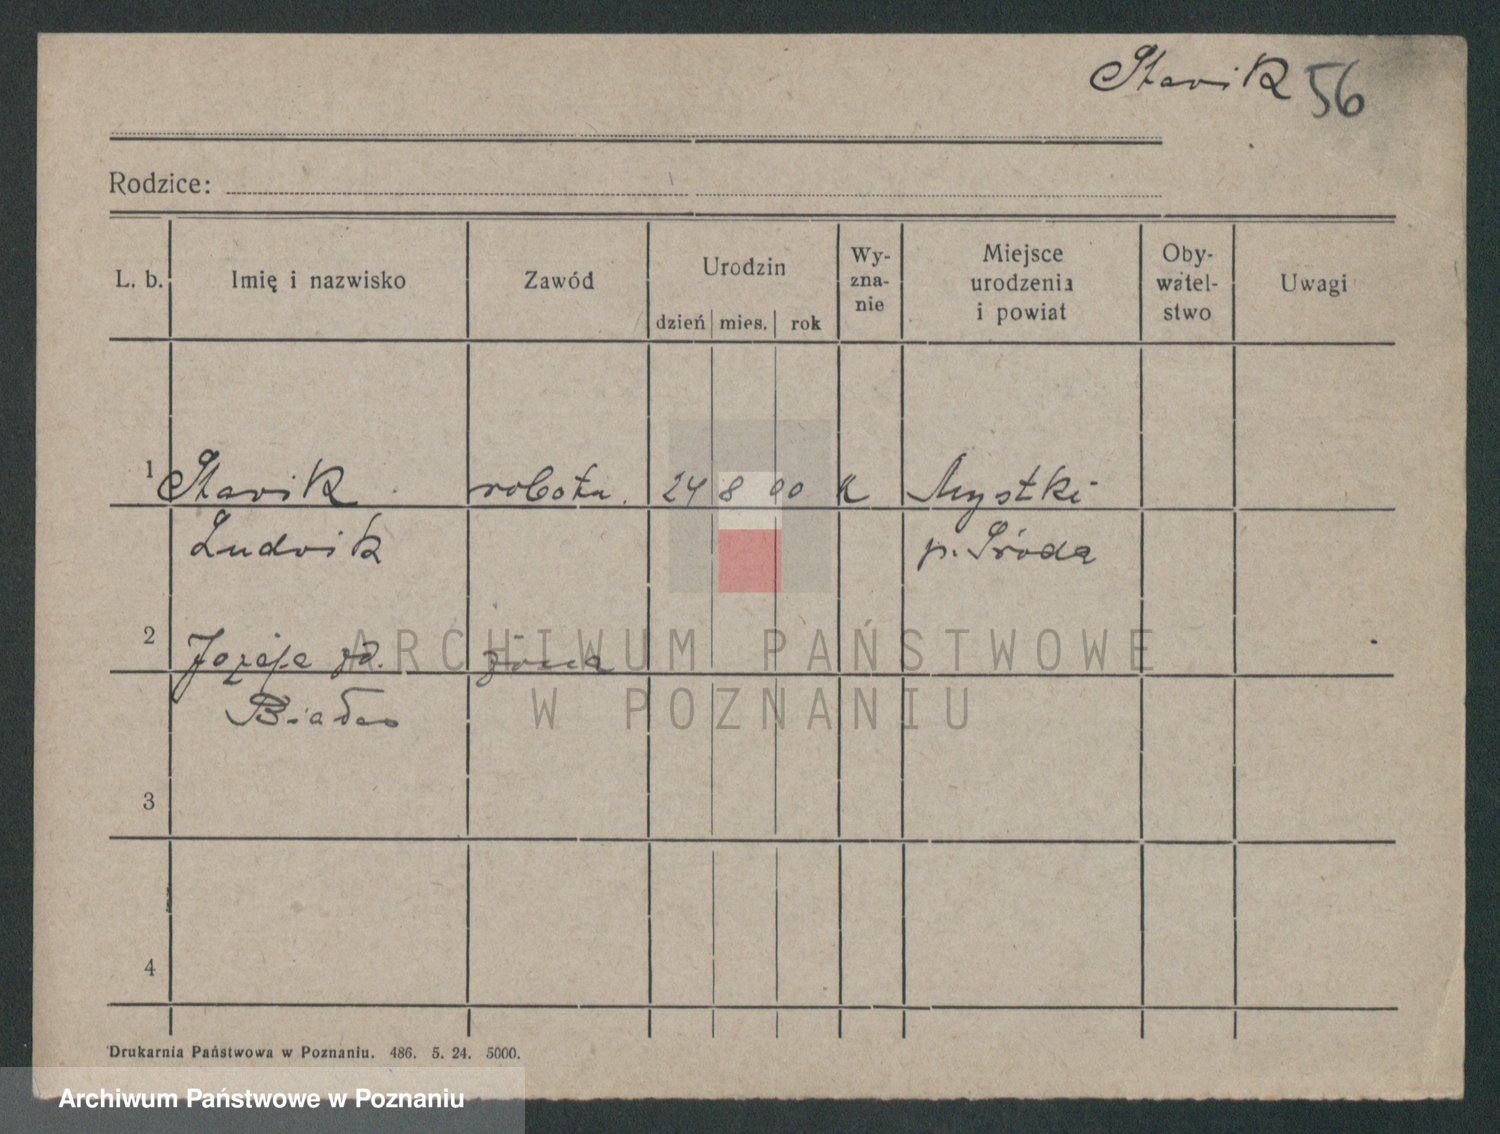 Stavik 56
Rodzice:
L. b. Imię i nazwisko Zawód Urodzin dzień mies. rok Wy-zna-nie Miejsce urodzenia i powiat Oby-watel-stwo Uwagi
1 Stavik robotn. 24 8 00 k Mystki
Ludvik p. Środa
2 Józefa żona
ARCHIWUM PAŃSTWOWE
W POZNANIU
3
4
Drukarnia Państwowa w Poznaniu. 486. 5. 24. 5000.
Archiwum Państwowe w Poznaniu